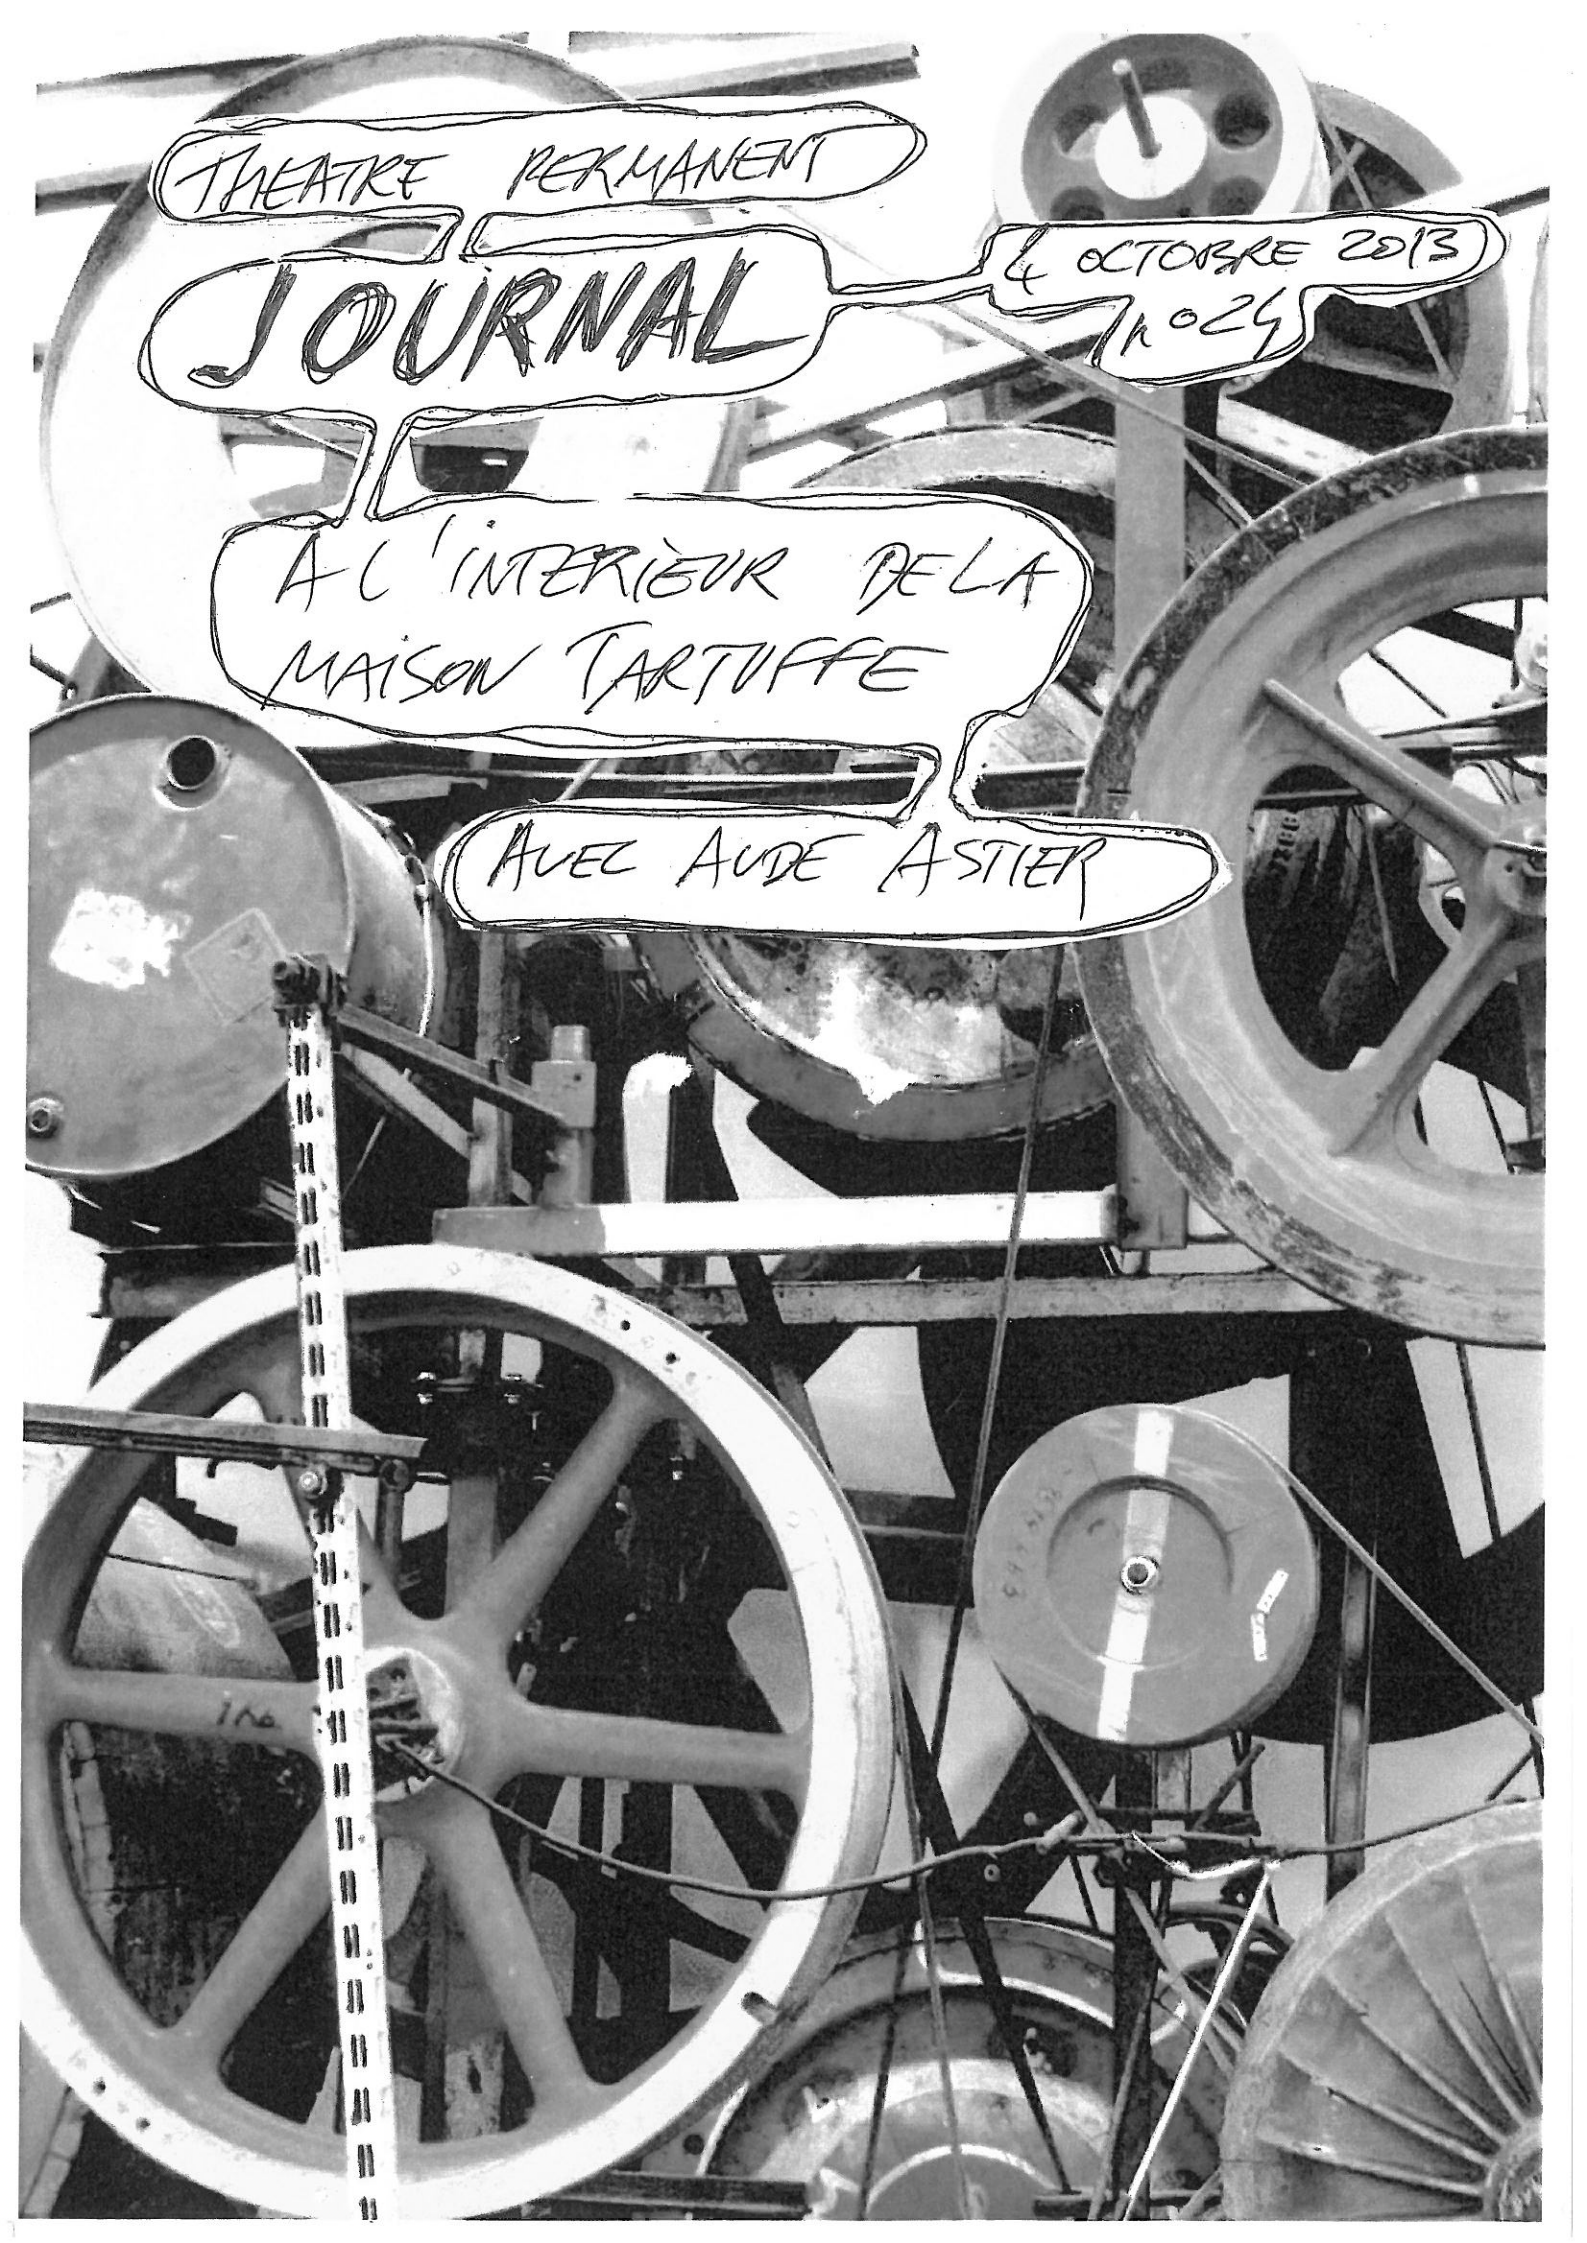 THEATRE PERMANENT
JOURNAL
4 OCTOBRE 2013
n°24
A L'INTERIEUR DE LA
MAISON TARTUFFE
AVEC AUDE ASTIER